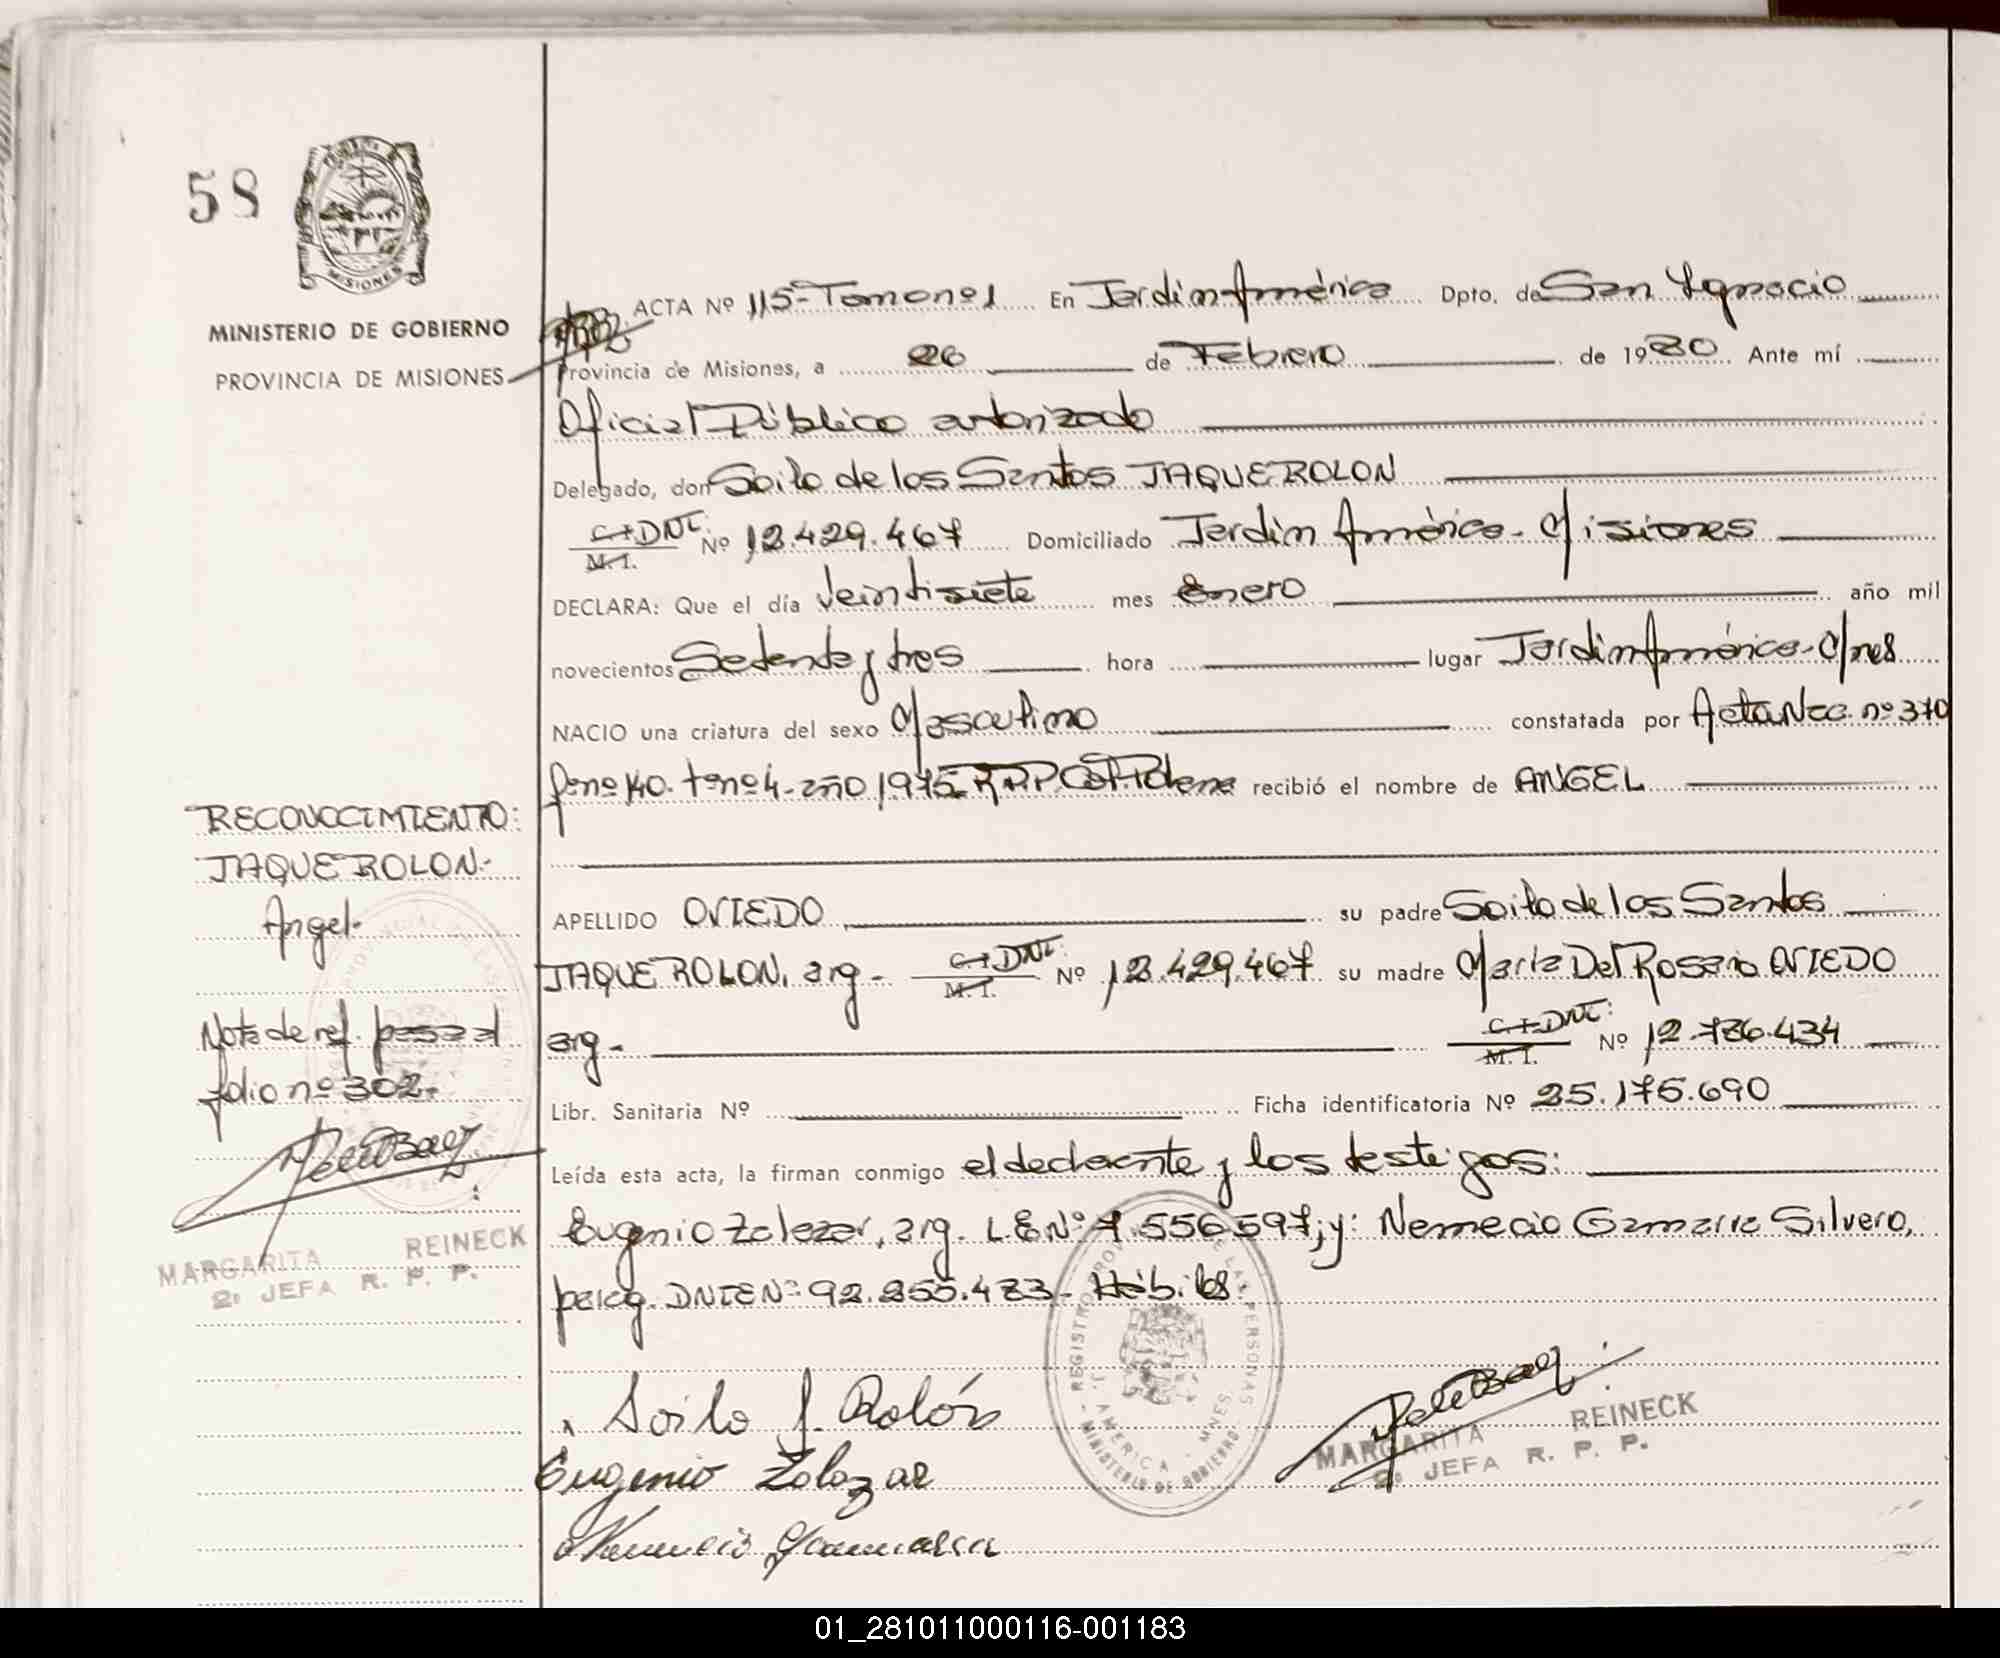 58
MISIONES
MINISTERIO DE GOBIERNO
PROVINCIA DE MISIONES
RECONOCIMIENTO:
JAQUE ROLON:
Angel.
Nota de ref. pasa al
folio nº 302.
MARGARITA REINECK
2º JEFA R. P. P.
ACTA Nº 115- Tomo nº 1 En Jardin América Dpto. de San Ignacio
Provincia de Misiones, a 26 de Febrero de 1980 Ante mí
Oficial Público autorizado
Delegado, don Soilo de los Santos JAQUE ROLON
C.I. DNI: M.I. Nº 12.429.467 Domiciliado Jardin América - Misiones
DECLARA: Que el día Veintisiete mes Enero año mil
novecientos Setenta y tres hora lugar Jardin América- M/nes
NACIO una criatura del sexo Masculino constatada por Acta Nac. nº 370
fº nº 140. tº nº 4 - año 1975 recibió el nombre de ANGEL
APELLIDO OVIEDO su padre Soilo de los Santos
JAQUE ROLON, arg - C.I. DNI: M.I. Nº 12.429.467 su madre María Del Rosario OVIEDO
arg - C.I. DNI: M.I. Nº 12.786.434
Libr. Sanitaria Nº Ficha identificatoria Nº 25.175.690
Leída esta acta, la firman conmigo el declarante y los testigos:
Eugenio Zalazar, arg. L.E.Nº: 7.556.597; y: Nemecio Gamarra Silvero,
parag. DNIE Nº: 92.255.473 - Hábiles.
Soilo S. Rolón
Eugenio Zalazar
Nemecio Gamarra
REGISTRO PROV DE LAS PERSONAS
J. AMERICA - MNES
MINISTERIO DE GOBIERNO
MARGARITA REINECK
2º JEFA R. P. P.
01_281011000116-001183